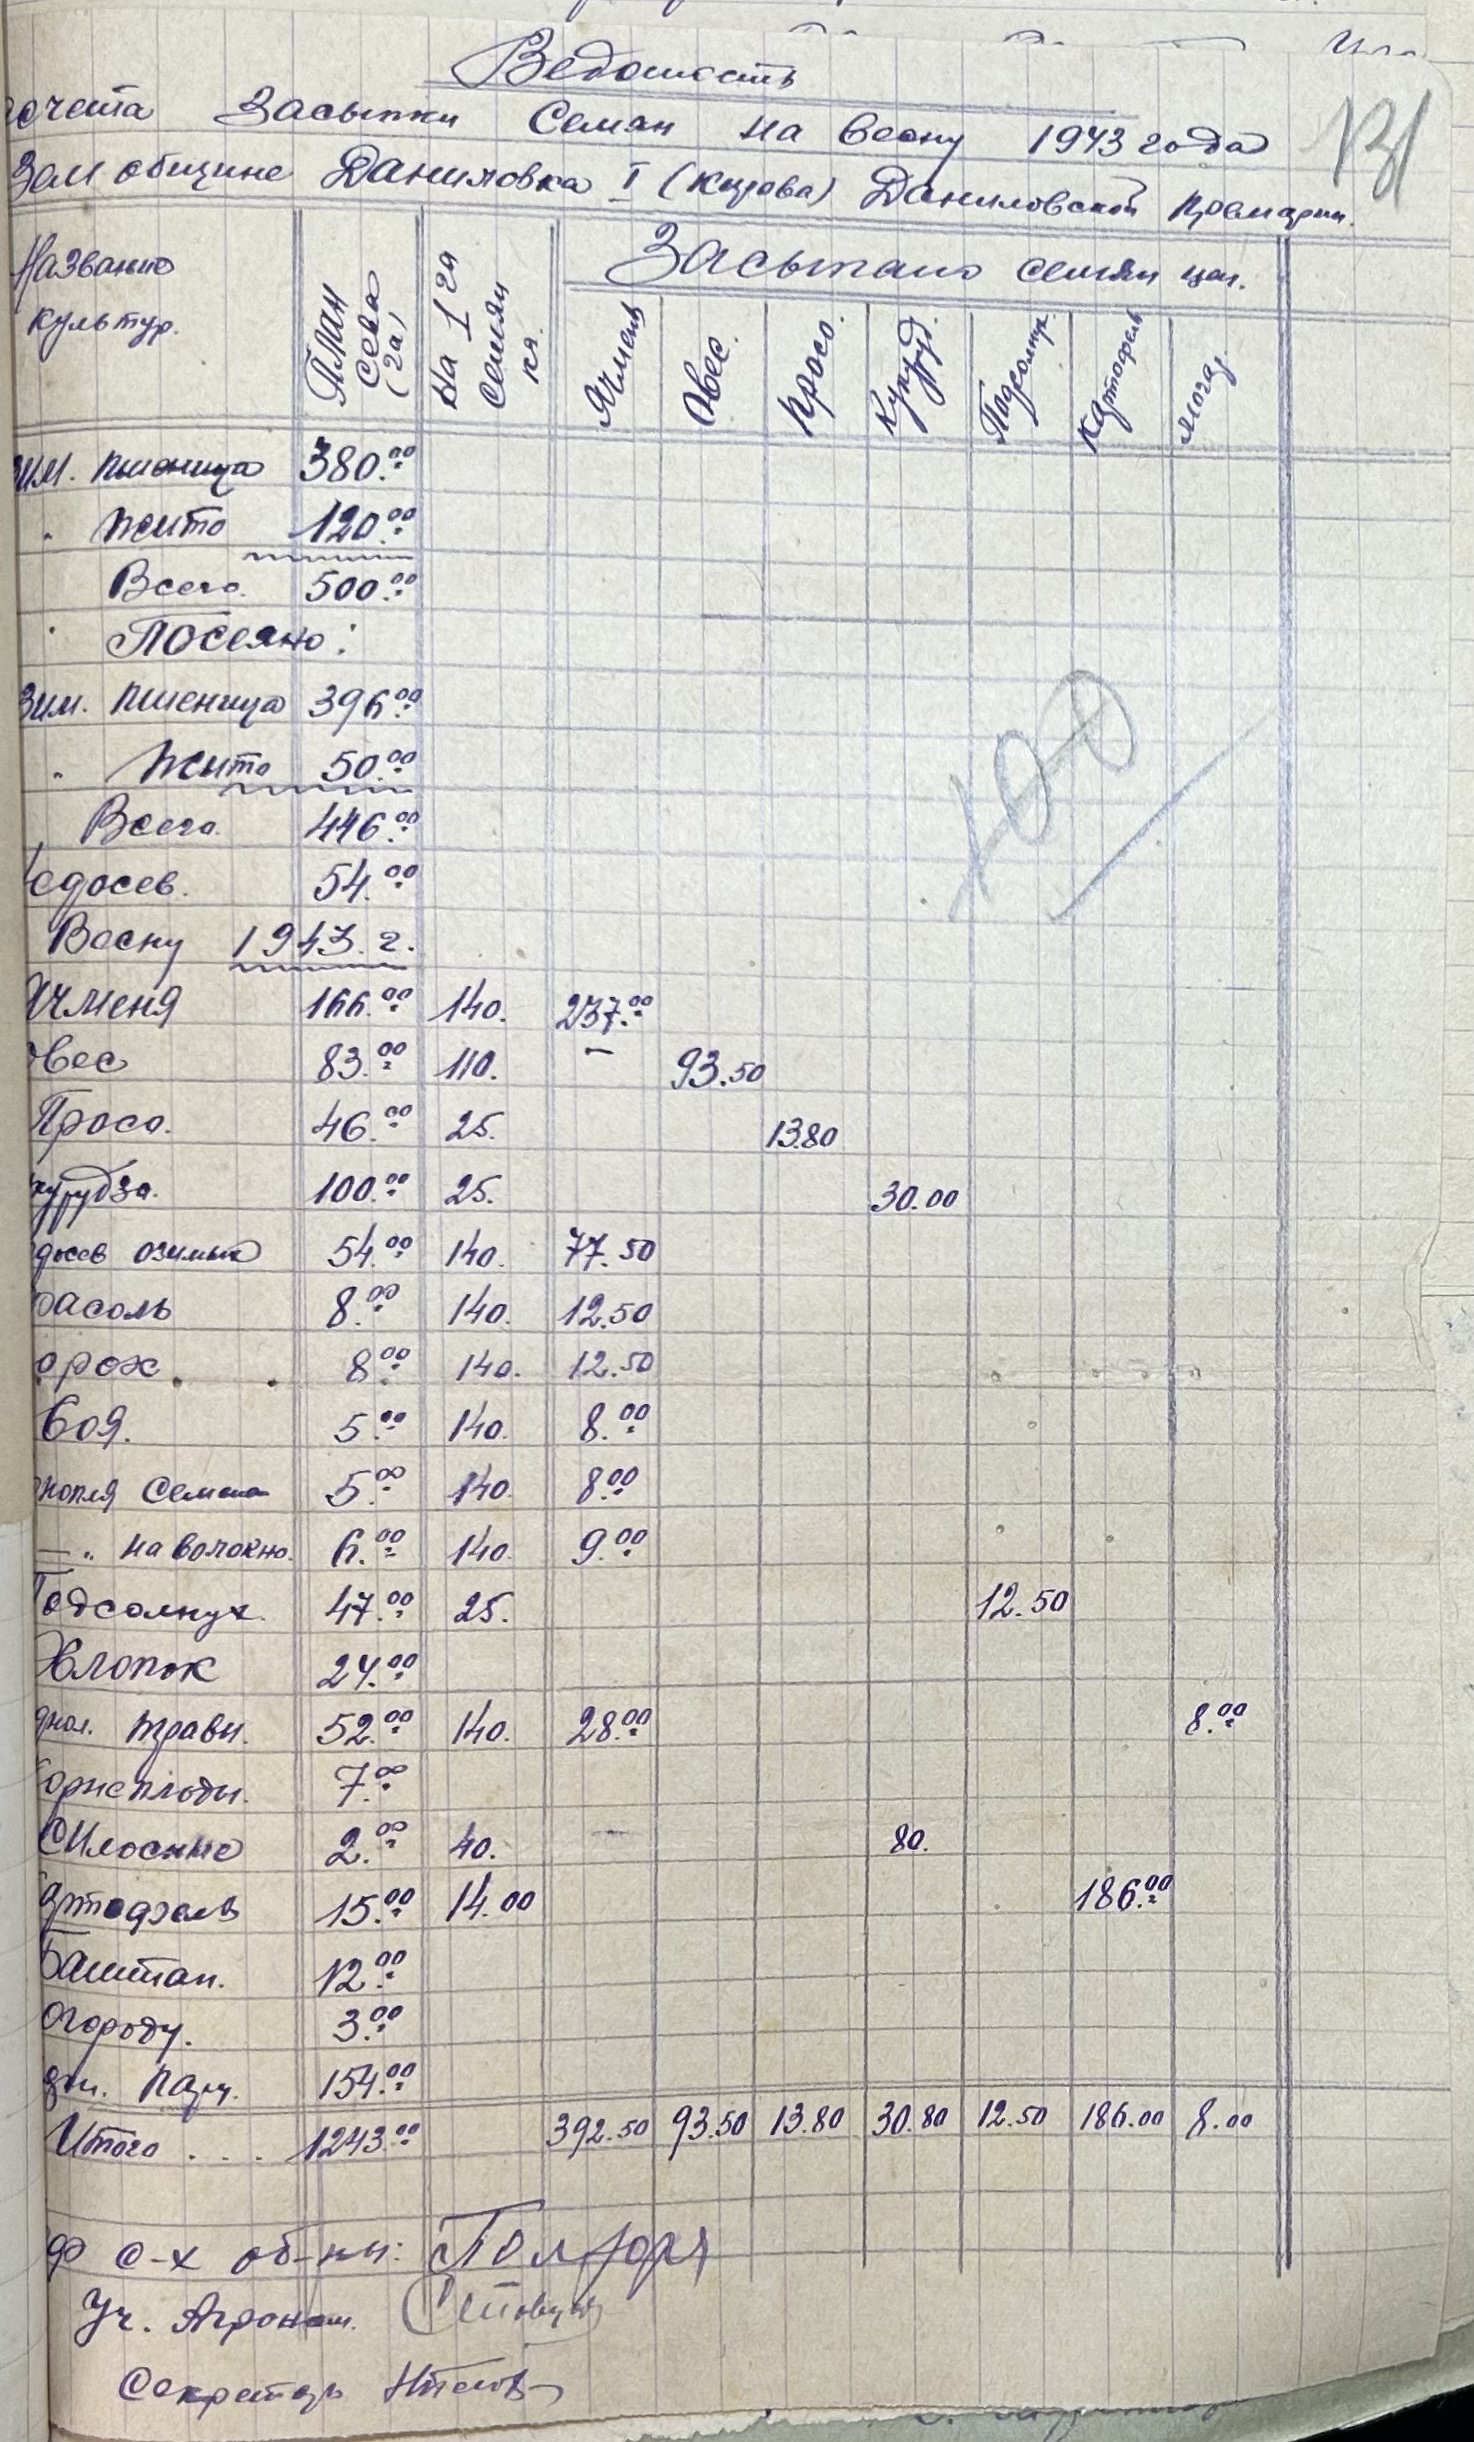 Ведомость
Засыпки Семян на весну 1943 года
131
Зем общине Даниловка I Даниловской
Название культур.
План сева (га)
На 1 га семян кг.
Засыпано семян цен.
Ячмень
Овес.
Просо.
Кукуруд.
Подсолнух.
Картофель
могар
зим. пшеница 380.00
" жито 120.00
Всего. 500.00
Посеяно:
Зим. пшеница 396.00
" жито 50.00
Всего. 446.00
едосев. 54.00
Весну 1943. г.
Ячменя 166.00 140. 237.00
Овес 83.00 110. — 93.50
Просо. 46.00 25. 13.80
курудза. 100.00 25. 30.00
досев озимых 54.00 140. 77.50
расоль 8.00 140. 12.50
орох. 8.00 140. 12.50
Соя. 5.00 140. 8.00
нопля Семена 5.00 140. 8.00
—„ на волокно. 6.00 140. 9.00
Подсолнух. 47.00 25. 12.50
Хлопок 24.00
днол. травы. 52.00 140. 28.00 8.00
орнеплоды. 7.00
Силосные 2.00 40. 80.
артофель 15.00 14.00 186.00
Баштан. 12.00
Огороду. 3.00
154.00
Итого .... 1243.00 392.50 93.50 13.80 30.80 12.50 186.00 8.00
с-х об-ны:
Уч. Агроном.
Секретарь